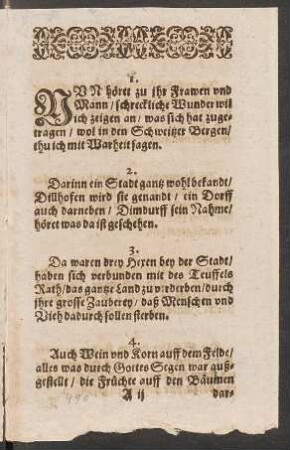 1.
NVN höret zu ihr Frawen vnd
Mann / schreckliche Wunder wil
ich zeigen an / was sich hat zuge-
tragen / wol in den Schweitzer Bergen /
thu ich mit Warheit sagen.
2.
Darinn ein Stadt gantz wohl bekandt /
Dillhofen wird sie genandt / ein Dorff
auch darneben / Dimdurff sein Nahme /
höret was da ist geschehen.
3.
Da waren drey Hexen bey der Stadt /
haben sich verbunden mit des Teuffels
Rath / das gantze Land zu verderben / durch
ihre grosse Zauberey / daß Menschen vnd
Vieh dadurch sollen sterben.
4.
Auch Wein vnd Korn auff dem Felde /
alles was durch Gottes Segen war auß-
gestellt / die Früchte auff den Bäumen
A ij
dar-